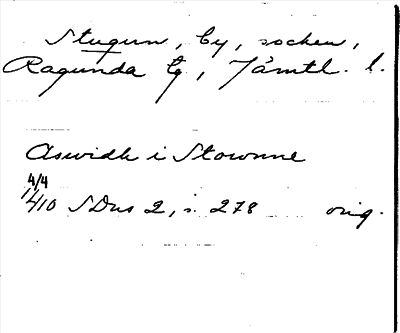 Stugun, by, socken,
Ragunda tg, Jämtl. l.
Aswidh i Stownne
4/4
1410 SDns 2, s. 278 orig.